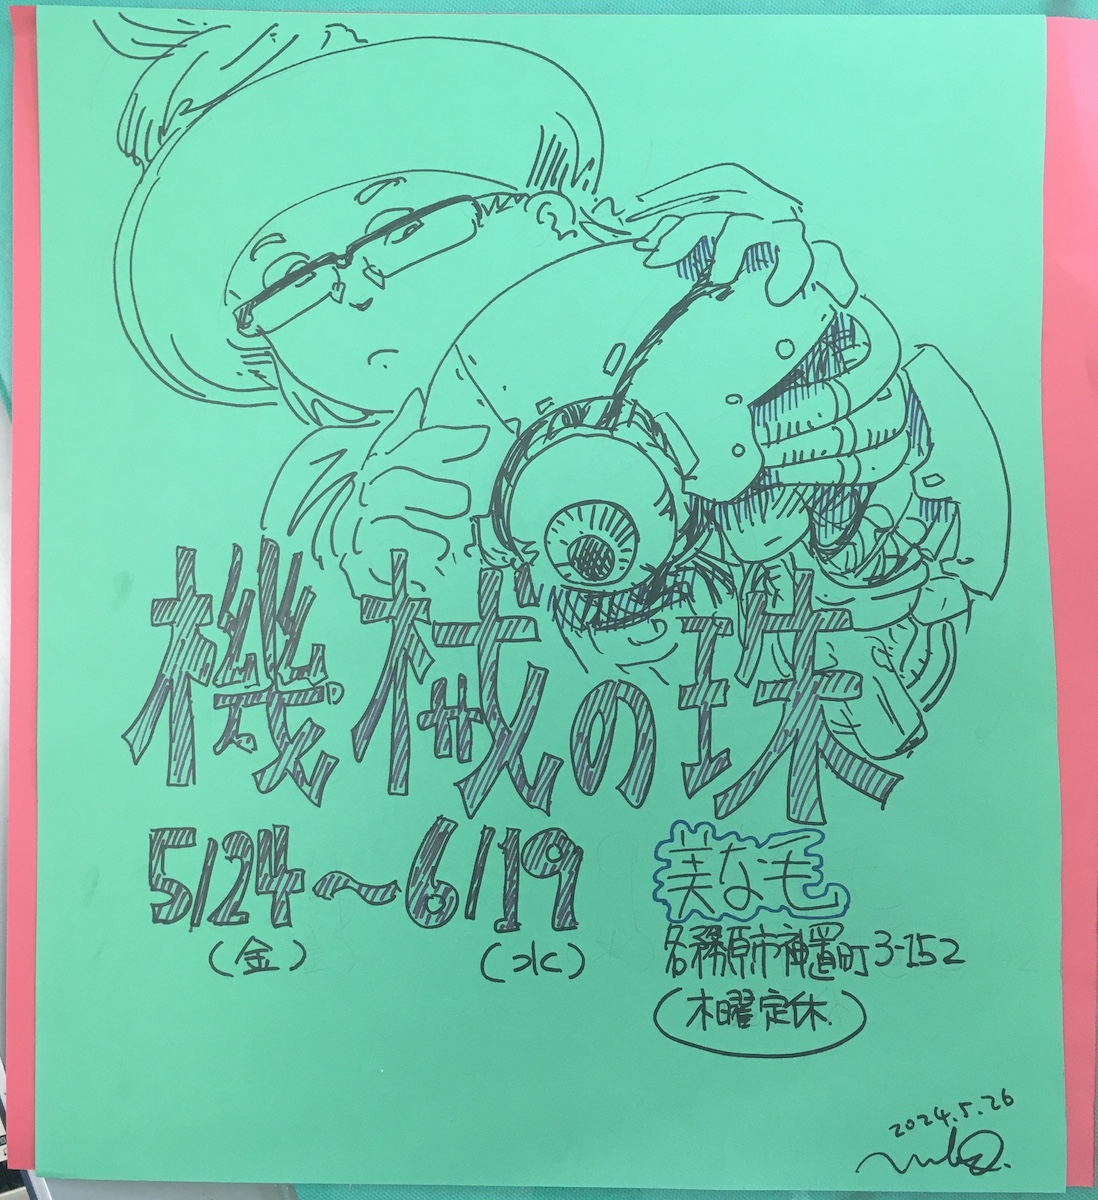 機械の珠
5/24～6/19
(金) (水)
美な毛
各務原市神置町3-152
(木曜定休)
2024.5.26